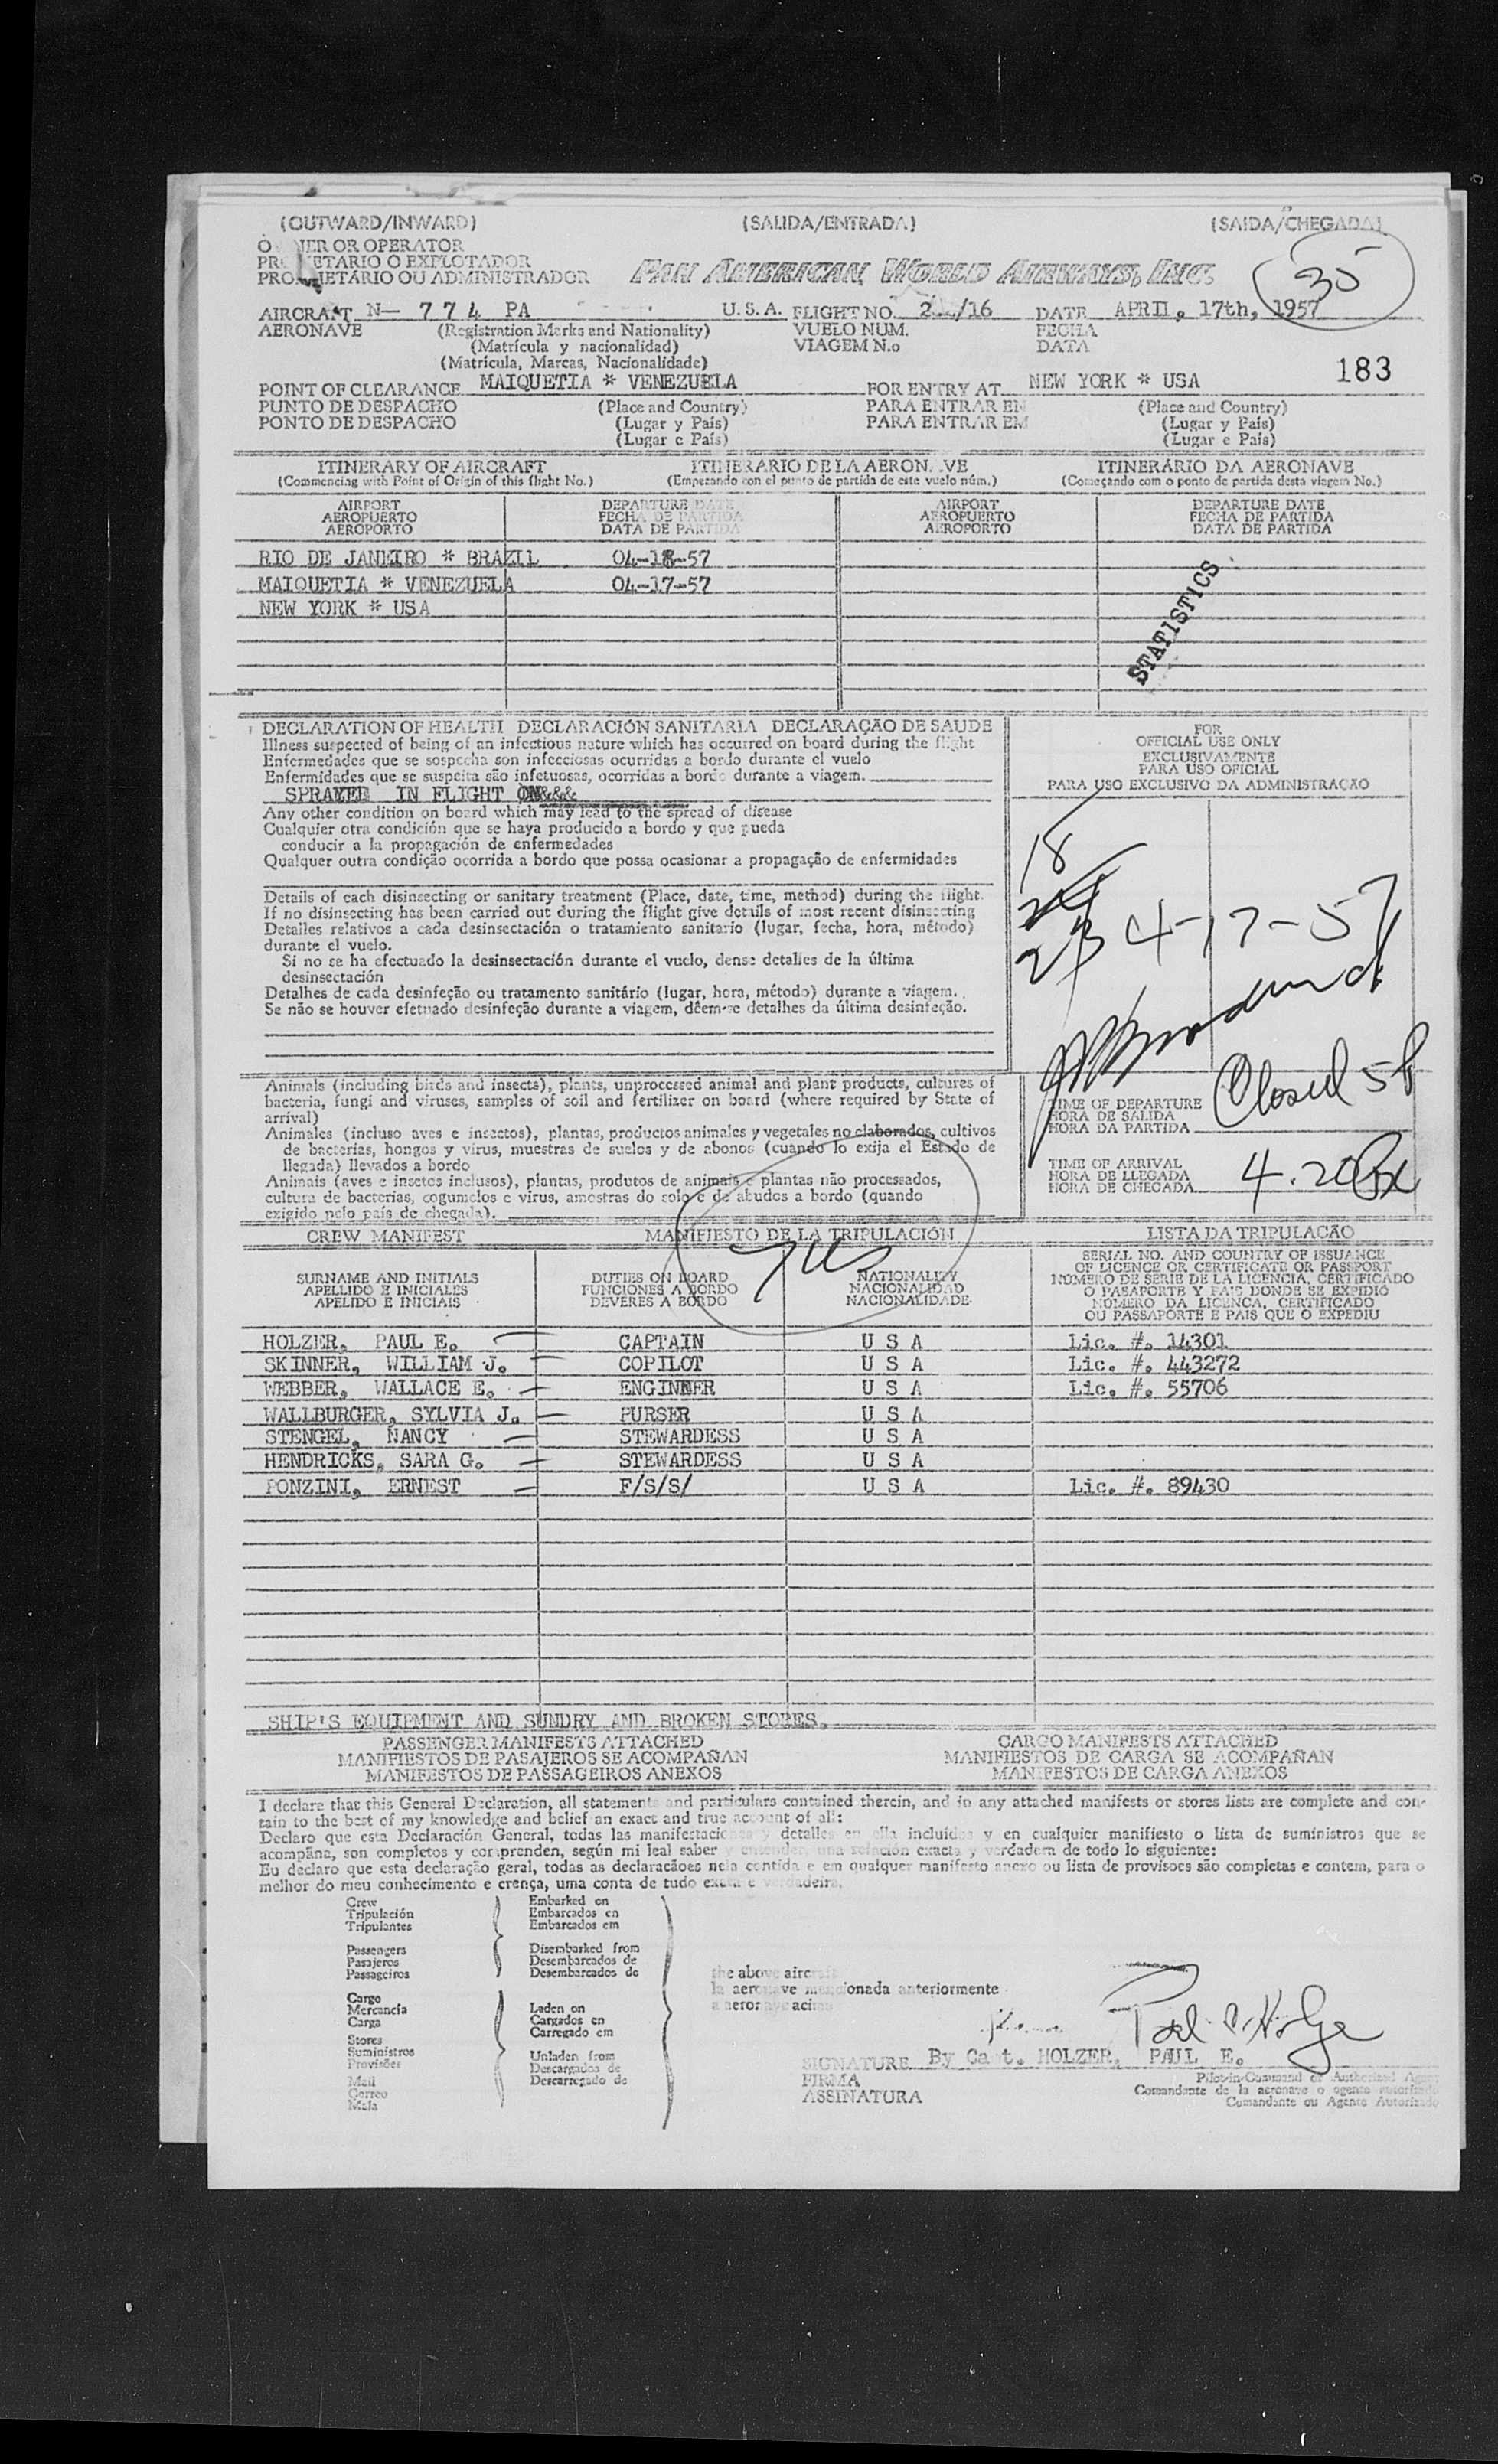 (OUTWARD/INWARD) (SALIDA/ENTRADA) (SAIDA/CHEGADA)
OR OPERATOR
O EXPLOTADOR
OU ADMINISTRADOR PAN AMERICAN WORLD AIRWAYS, INC. 35
AIRCRAFT N— 774 PA U.S.A. FLIGHT NO. /16 DATE APRIL, 17th, 1957
AERONAVE (Registration Marks and Nationality) VUELO NUM. FECHA
(Matrícula y nacionalidad) VIAGEM N.o DATA
(Matricula, Marcas, Nacionalidade)
183
POINT OF CLEARANCE MAIQUETIA * VENEZUELA FOR ENTRY AT NEW YORK * USA
PUNTO DE DESPACHO (Place and Country) PARA ENTRAR EN (Place and Country)
PONTO DE DESPACHO (Lugar y País) PARA ENTRAR EM (Lugar y País)
(Lugar e País) (Lugar e País)
ITINERARY OF AIRCRAFT ITINERARIO DE LA AERON. .VE ITINERÁRIO DA AERONAVE
(Commencing with Point of Origin of this flight No.) (Empezando con el punto de partida de este vuelo núm.) (Começando com o ponto de partida desta viagem No.)
AIRPORT DEPARTURE DATE AIRPORT DEPARTURE DATE
AEROPUERTO FECHA DE PARTIDA AEROPUERTO FECHA DE PARTIDA
AEROPORTO DATA DE PARTIDA AEROPORTO DATA DE PARTIDA
RIO DE JANEIRO * BRAZIL 04-18-57
MAIQUETIA * VENEZUELA 04-17-57
NEW YORK * USA
STATISTICS
DECLARATION OF HEALTH DECLARACIÓN SANITARIA DECLARAÇÃO DE SAUDE
Illness suspected of being of an infectious nature which has occurred on board during the flight
Enfermedades que se sospecha son infecciosas ocurridas a bordo durante el vuelo
Enfermidades que se suspeita são infetuosas, ocorridas a bordo durante a viagem.
SPRAYED IN FLIGHT ON&&&
Any other condition on board which may lead to the spread of disease
Cualquier otra condición que se haya producido a bordo y que pueda
conducir a la propagación de enfermedades
Qualquer outra condição ocorrida a bordo que possa ocasionar a propagação de enfermidades
Details of each disinsecting or sanitary treatment (Place, date, time, method) during the flight.
If no disinsecting has been carried out during the flight give details of most recent disinsecting
Detalles relativos a cada desinsectación o tratamiento sanitario (lugar, fecha, hora, método)
durante el vuelo.
Si no se ha efectuado la desinsectación durante el vuelo, dense detalles de la última
desinsectación
Detalhes de cada desinfeção ou tratamento sanitário (lugar, hora, método) durante a viagem.
Se não se houver efetuado desinfeção durante a viagem, dêem-se detalhes da última desinfeção.
FOR
OFFICIAL USE ONLY
EXCLUSIVAMENTE
PARA USO OFICIAL
PARA USO EXCLUSIVO DA ADMINISTRAÇÃO
18
23 4-17-57
Closed 5
Animals (including birds and insects), plants, unprocessed animal and plant products, cultures of
bacteria, fungi and viruses, samples of soil and fertilizer on board (where required by State of
arrival)
Animales (incluso aves e insectos), plantas, productos animales y vegetales no elaborados, cultivos
de bacterias, hongos y virus, muestras de suelos y de abonos (cuando lo exija el Estado de
llegada) llevados a bordo
Animais (aves e insetos inclusos), plantas, produtos de animais e plantas não processados,
cultura de bacterias, cogumelos e virus, amostras do solo e de abudos a bordo (quando
exigido pelo país de chegada).
TIME OF DEPARTURE
HORA DE SALIDA
HORA DA PARTIDA
TIME OF ARRIVAL
HORA DE LLEGADA
HORA DE CHEGADA 4.20
CREW MANIFEST MANIFIESTO DE LA TRIPULACIÓN LISTA DA TRIPULAÇÃO
SURNAME AND INITIALS DUTIES ON BOARD NATIONALITY
APELLIDO E INICIALES FUNCIONES A BORDO NACIONALIDAD
APELIDO E INICIAIS DEVERES A BORDO NACIONALIDADE
SERIAL NO. AND COUNTRY OF ISSUANCE
OF LICENCE OR CERTIFICATE OR PASSPORT
NÚMERO DE SERIE DE LA LICENCIA, CERTIFICADO
O PASAPORTE Y PAIS DONDE SE EXPIDIÓ
NÚMERO DA LICENCA, CERTIFICADO
OU PASSAPORTE E PAIS QUE O EXPEDIU
HOLZER, PAUL E. CAPTAIN U S A Lic. #. 14301
SKINNER, WILLIAM J. COPILOT U S A Lic. #. 443272
WEBBER, WALLACE E. ENGINEER U S A Lic. #. 55706
WALLBURGER, SYLVIA J. PURSER U S A
STENGEL, NANCY STEWARDESS U S A
HENDRICKS, SARA G. STEWARDESS U S A
PONZINI, ERNEST F/S/S/ U S A Lic. #. 89430
SHIP'S EQUIPMENT AND SUNDRY AND BROKEN STORES.
PASSENGER MANIFESTS ATTACHED CARGO MANIFESTS ATTACHED
MANIFIESTOS DE PASAJEROS SE ACOMPAÑAN MANIFIESTOS DE CARGA SE ACOMPAÑAN
MANIFESTOS DE PASSAGEIROS ANEXOS MANIFESTOS DE CARGA ANEXOS
I declare that this General Declaration, all statements and particulars contained therein, and in any attached manifests or stores lists are complete and con-
tain to the best of my knowledge and belief an exact and true account of all:
Declaro que esta Declaración General, todas las manifestaciones y detalles en ella incluídos y en cualquier manifiesto o lista de suministros que se
acompaña, son completos y comprenden, según mi leal saber y entender, una relación exacta y verdadera de todo lo siguiente:
Eu declaro que esta declaração geral, todas as declaracões nela contida e em qualquer manifesto anexo ou lista de provisoes são completas e contem, para o
melhor do meu conhecimento e crença, uma conta de tudo exata e verdadeira.
Crew Embarked on
Tripulación Embarcados en
Tripulantes Embarcados em
Passengers Disembarked from
Pasajeros Desembarcados de
Passageiros Desembarcados de
the above aircraft
la aeronave mencionada anteriormente
a aeronave acima
Cargo
Mercancía Laden on
Carga Cargados en
Carregado em
Stores
Suministros Unladen from
Provisões Descargados de
Mail Descarregado de
Correo
Mala
SIGNATURE By Ca t. HOLZER, PAUL E.
FIRMA Pilot-in-Command or Authorized Agent
ASSINATURA Comandante de la aeronave o agente autorizado
Comandante ou Agente Autorizado